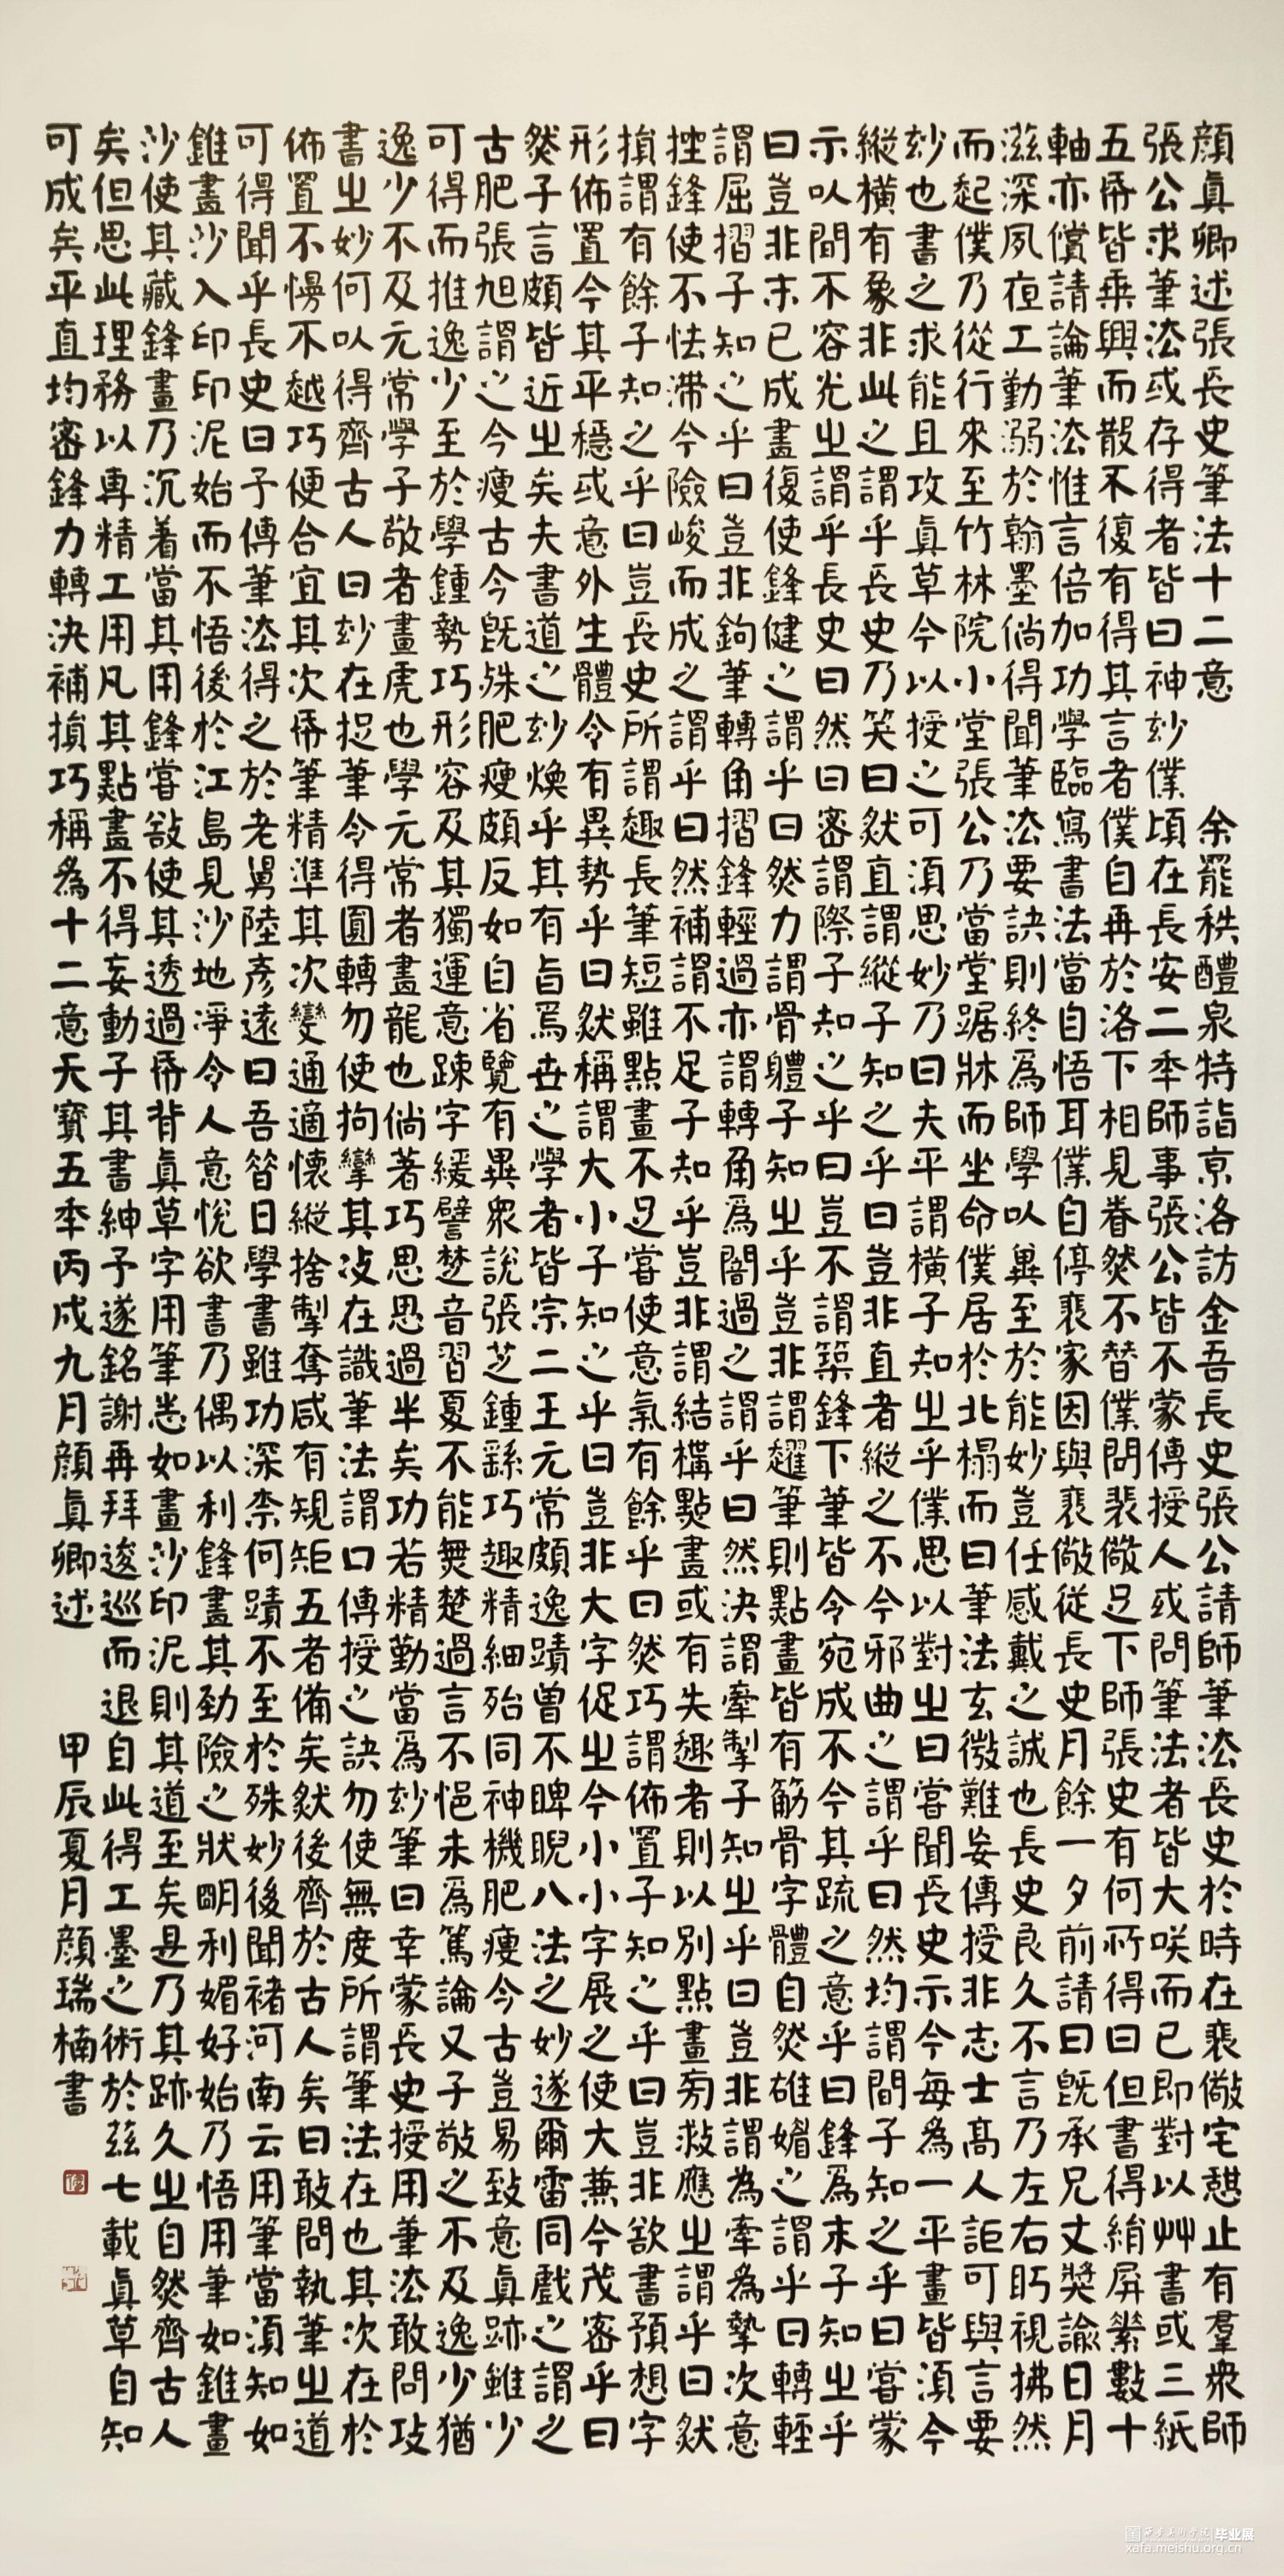 顏眞卿述張長史筆法十二意 余罷秩醴泉特詣京洛訪金吾長史張公請師筆法長史於時在裴儆宅憇止有羣衆師
張公求筆法或存得者皆曰神妙僕頃在長安二年師事張公皆不蒙傳授人或問筆法者皆大咲而已即對以艸書或三紙
五帋皆乘興而散不復有得其言者僕自再於洛下相見眷然不替僕問裴儆足下師張史有何所得曰但書得絹屏素數十
軸亦償請論筆法惟言倍加功學臨寫書法當自悟耳僕自停裴家因與裴儆從長史月餘一夕前請曰旣承兄丈奬諭日月
滋深夙夜工勤溺於翰墨倘得聞筆法要訣則終爲師學以冀至於能妙豈任感戴之誠也長史良久不言乃左右眄視拂然
而起僕乃從行來至竹林院小堂張公乃當堂踞牀而坐命僕居於北榻而曰筆法玄微難妄傳授非志士高人詎可與言要
妙也書之求能且攻眞草今以授之可須思妙乃曰夫平謂橫子知之乎僕思以對之曰嘗聞長史示今每為一平畫皆須今
縱橫有象非此之謂乎長史乃笑曰然直謂縱子知之乎曰豈非直者縱之不令邪曲之謂乎曰然均謂間子知之乎曰嘗蒙
示以間不容光之謂乎長史曰然曰密謂際子知之乎曰豈不謂築鋒下筆皆令宛成不令其疏之意乎曰鋒爲末子知之乎
曰豈非末已成畫復使鋒健之謂乎曰然力謂骨軆子知之乎豈非謂趯筆則點畫皆有筋骨字體自然雄媚之謂乎曰轉輕
謂屈摺子知之乎曰豈非鉤筆轉角摺鋒輕過亦謂轉角爲闇過之謂乎曰然決謂牽掣子知之乎曰豈非謂為牽為摯次意
挫鋒使不怯滯令險峻而成之謂乎曰然補謂不足子知乎豈非謂結構點畫或有失趣者則以別點畫旁救應之謂乎曰然
損謂有餘子知之乎曰豈長史所謂趣長筆短雖點畫不足嘗使意氣有餘乎曰然巧謂佈置子知之乎曰豈非欲書預想字
形佈置令其平穩或意外生體令有異勢乎曰然稱謂大小子知之乎曰豈非大字促之令小小字展之使大兼令茂密乎曰
然子言頗皆近之矣夫書道之妙煥乎其有旨焉世之學者皆宗二王元常頗逸蹟曾不睥睨八法之妙遂爾雷同戲之謂之
古肥張旭謂之今瘦古今旣殊肥瘦頗反如自省覽有異眾說張芝鍾繇巧趣精細殆同神機肥瘦今古豈易致意眞跡雖少
可得而推逸少至於學鍾勢巧形容及其獨運意踈字緩譬楚音習夏不能無楚過言不悒未爲篤論又子敬之不及逸少猶
逸少不及元常學子敬者畫虎也學元常者畫龍也倘著巧思思過半矣功若精勤當爲妙筆曰幸蒙長史授用筆法敢問攻
書之妙何以得齊古人曰妙在捉筆令得圓轉勿使拘攣其次在識筆法謂口傳授之訣勿使無度所謂筆法在也其次在於
佈置不慢不越巧便合宜其次帋筆精準其次變通適懷縱捨掣奪咸有規矩五者備矣然後齊於古人矣曰敢問執筆之道
可得聞乎長史曰予傳筆法得之於老舅陸彥遠曰吾昝日學書雖功深柰何蹟不至於殊妙後聞褚河南云用筆當須知如
錐畫沙入印印泥始而不悟後於江島見沙地凈令人意悅欲書乃偶以利鋒畫其勁險之狀明利媚好始乃悟用筆如錐畫
沙使其藏鋒畫乃沉着當其用鋒嘗欲使其透過帋背眞草字用筆悉如畫沙印泥則其道至矣是乃其跡久之自然齊古人
矣但思此理務以專精工用凡其點畫不得妄動子其書紳予遂銘謝再拜逡巡而退自此得工墨之術於茲七載眞草自知
可成矣平直均密鋒力轉決補損巧稱為十二意天寶五年丙戌九月顏眞卿述 甲辰夏月顏瑞楠書
西安美術學院 毕业展
xafa.meishu.org.cn